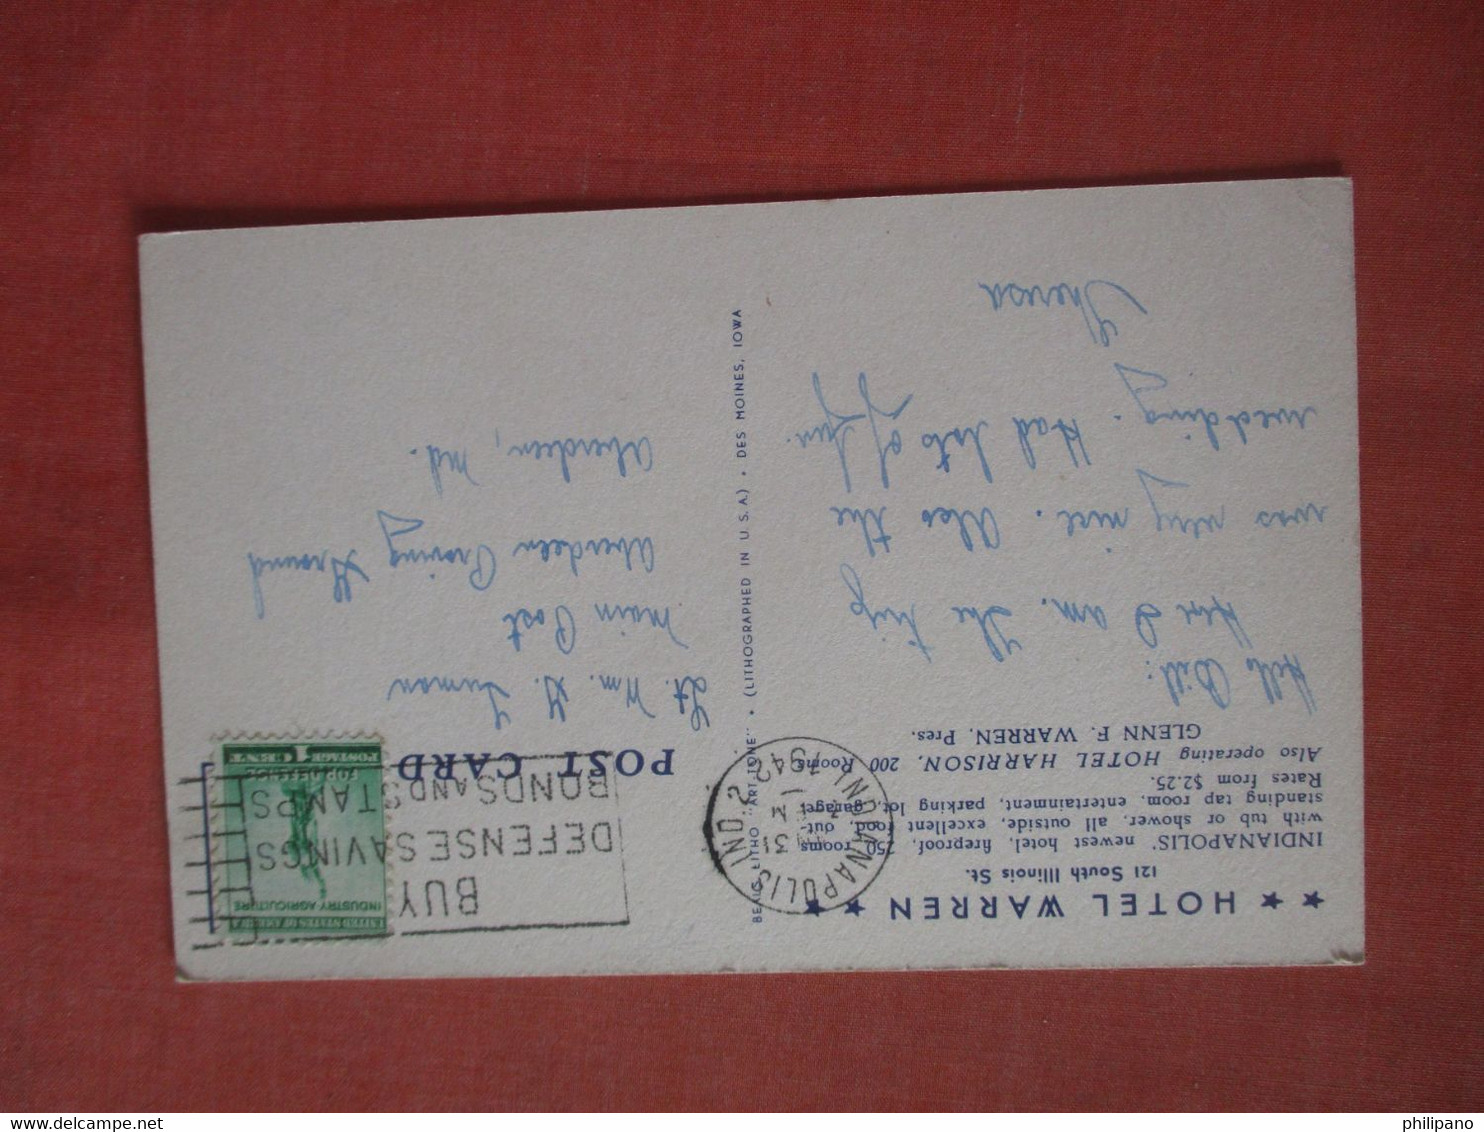 ★ ★ HOTEL WARREN ★ ★
121 South Illinois St.
INDIANAPOLIS' newest hotel, fireproof, 250 rooms
with tub or shower, all outside, excellent food, out-
standing tap room, entertainment, parking lot, garage.
Rates from $2.25.
Also operating HOTEL HARRISON, 200 Rooms
GLENN F. WARREN, Pres.
Hello Bill:
Here I am. The trip
was very nice. Also the
wedding. Had lots of fun.
Theresa
"ART-TONE" • (LITHOGRAPHED IN U. S. A.) • DES MOINES, IOWA
INDIANAPOLIS IND. 2
31
1942
BUY
DEFENSE SAVINGS
BONDS AND STAMPS
UNITED STATES OF AMERICA
INDUSTRY AGRICULTURE
FOR DEFENSE
1 CENT 1
POSTAGE
POST CARD
Lt. Wm. G. Furman
Main Post
Aberdeen Proving Ground
Aberdeen, Md.
philipano